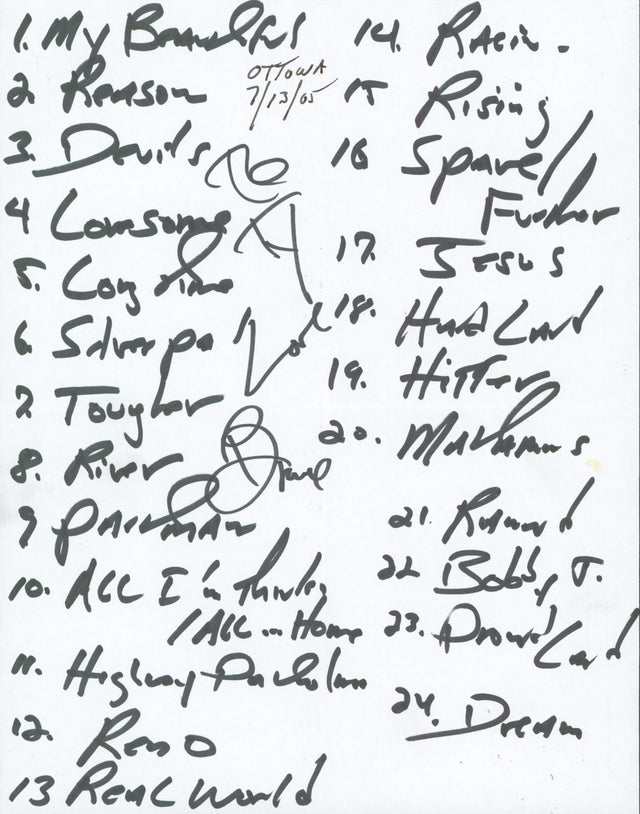 1. My Beautiful
2. Reason
3. Devils
4 Lonesome
5. Long time
6 Silver pa
7 Tougher
8. River
9 Partman
10. ALL I'm Thinkin
/ALL in Home
11. Highway Patrolman
12. Reno
13 Real World
OTTOWA
7/13/05
Bruce
14. Racin.
15 Rising
16 Spare/
Further
17. Jesus
18. Hard Land
19. Hitter
20. Matamoros
21. Ramrod
22 Bobby J.
23. Promised
Land
24. Dream